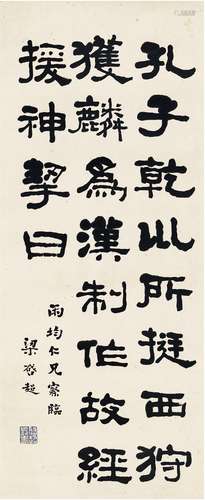 孔子乾㠯所挺西狩
獲麟爲漢制作故経
援神挈曰
雨均仁兄察臨
梁啓超